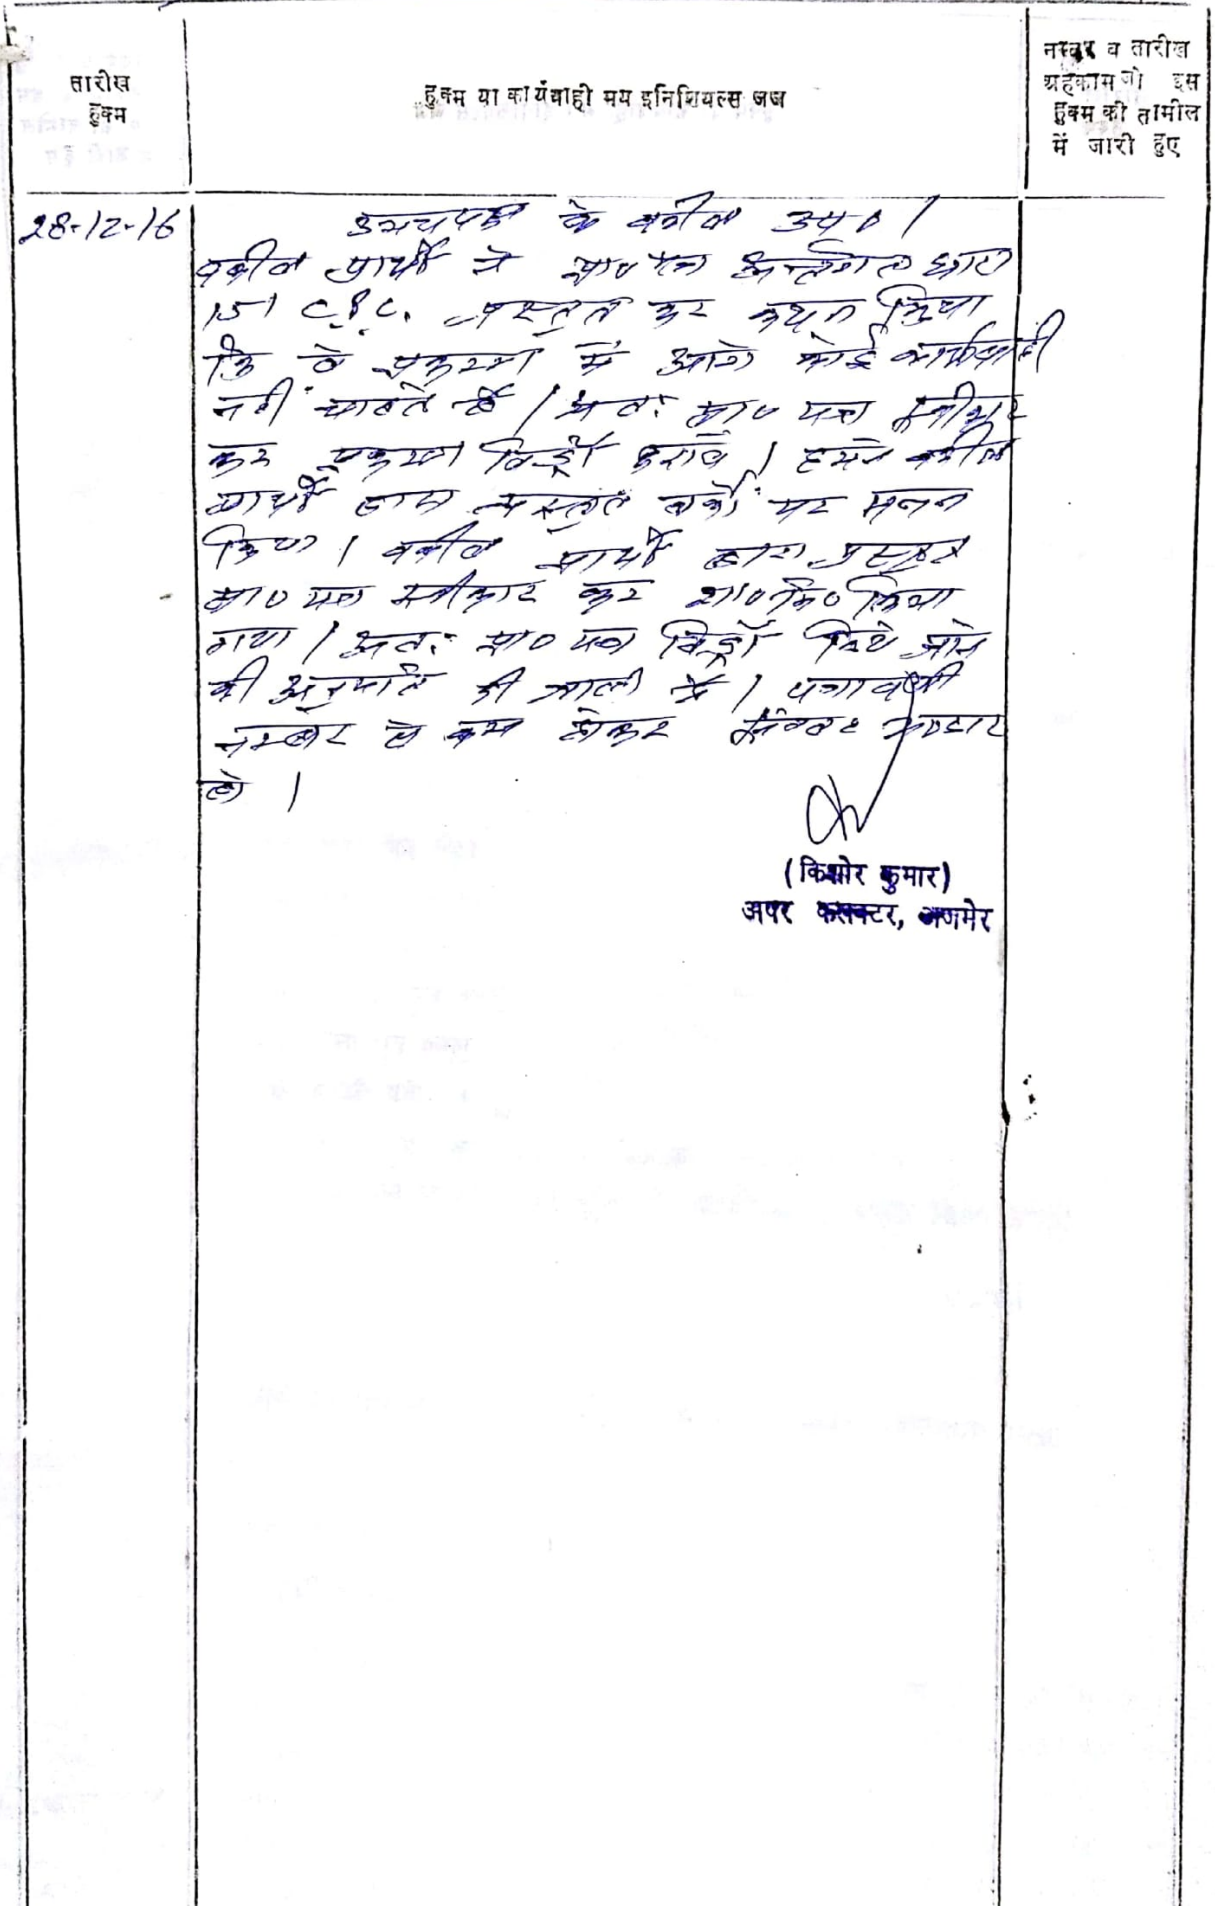 तारीख
हुक्म
हुक्म या कार्यवाही मय इनिशियल्स जज
नम्बर व तारीख
अहकाम जो इस
हुक्म की तामील
में जारी हुए
28-12-16
उभयपक्ष के वकील उप० |
वकील प्रार्थी ने प्रा० पत्र अन्तर्गत धारा
151 C.P.C. प्रस्तुत कर कथन किया
कि वे प्रकरण में आगे कोई कार्यवाही
नहीं चाहते हैं | अतः प्रा० पत्र स्वीकार
कर प्रकरण विड्रॉ करावें | हमने वकील
प्रार्थी द्वारा प्रस्तुत तर्को पर मनन
किया | वकील प्रार्थी द्वारा प्रस्तुत
प्रा० पत्र स्वीकार कर शा० मि० किया
गया | अतः प्रा० पत्र विड्रॉ किये जाने
की अनुमति दी जाती है | पत्रावली
नम्बर से कम होकर दाखिल दफ्तर
हो |
(किशोर कुमार)
अपर कलक्टर, अजमेर